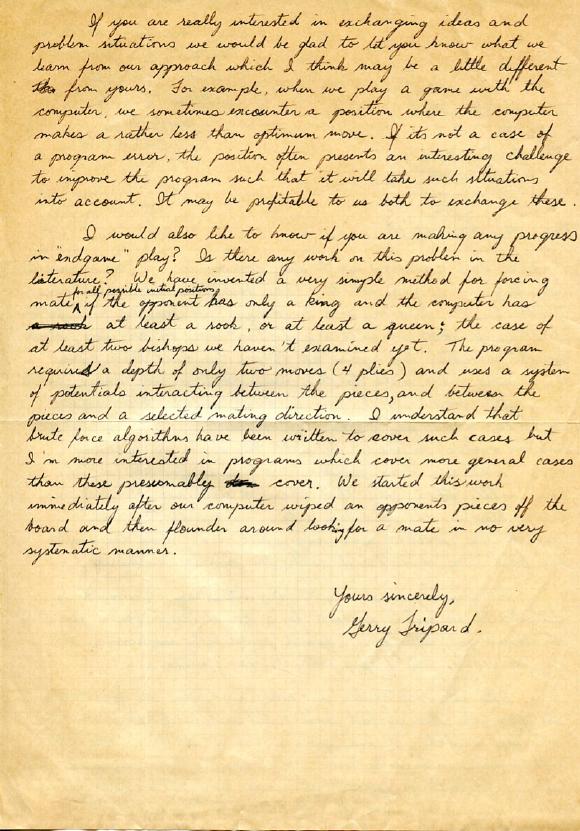 If you are really interested in exchanging ideas and
problem situations we would be glad to let you know what we
learn from our approach which I think may be a little different
from yours. For example, when we play a game with the
computer, we sometimes encounter a position where the computer
makes a rather less than optimum move. If it's not a case of
a program error, the position often presents an interesting challenge
to improve the program such that it will take such situations
into account. It may be profitable to us both to exchange these.
I would also like to know if you are making any progress
in "endgame" play? Is there any work on this problem in the
literature? We have invented a very simple method for forcing
for all possible initial positions
mate if the opponent has only a king and the computer has
at least a rook, or at least a queen; the case of
at least two bishops we haven't examined yet. The program
required a depth of only two moves (4 plies) and uses a system
of potentials interacting between the pieces, and between the
pieces and a selected mating direction. I understand that
brute force algorithms have been written to cover such cases but
I'm more interested in programs which cover more general cases
than these presumably cover. We started this work
immediately after our computer wiped an opponents pieces off the
board and then flounder around looking for a mate in no very
systematic manner.
Yours sincerely,
Gerry Tripard.